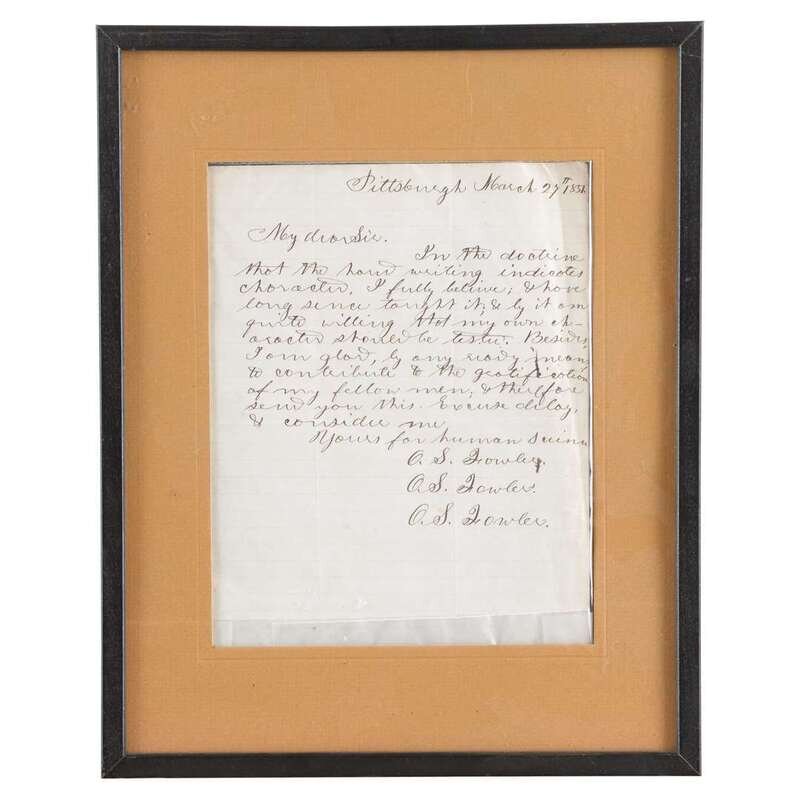 Pittsburgh March 27th 185
My dear Sir.
In the doctrine
that the hand writing indicates
character, I fully believe; & have
long since taught it; & by it am
quite willing that my own ch-
aracter should be tested. Besides,
I am glad, by any ready means
to contribute to the gratification
of my fellow men, & therefore
send you this. Excuse delay,
& consider me
Yours for human
O. S. Fowler.
O. S. Fowler.
O. S. Fowler.